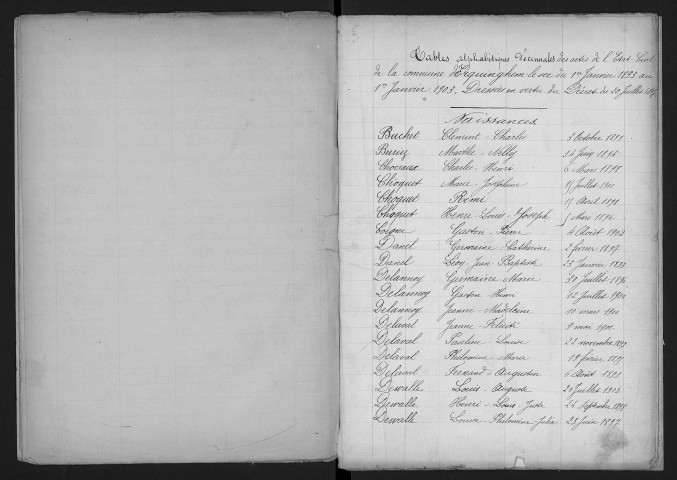 Tables alphabétiques décennales des actes de l'Etat Civil
de la commune d'Erquinghem-le-sec du 1er Janvier 1893 au
1er Janvier 1903, Dressées en vertu du Décret du 20 Juillet
Naissances
Buchet Clément-Charles 3 Octobre
Buriez Marthe-Nelly Juin 1896
Chocraux Charles-Henri 6 Mars 1898
Choquet Marie-Joséphine Juillet 1901
Choquet Rémi Avril
Choquet Henri-Louis-Joseph Mars
Coigne Gaston-Pierre 4 Août 1902
Danel Germaine-Catherine 2 février 1897
Danel Léon Jean-Baptiste 23 Janvier
Delannoy Germaine Marie 30 Juillet 1896
Delannoy Gaston Henri 12 Juillet 1900
Delannoy Jeanne-Madeleine 10 mars 1900
Delaval Jeanne-Félicité 9 mai 1901
Delaval Pauline-Louise 22 novembre
Delaval Philomène-Marie 19 février
Delaval Fernand-Augustin 6 Août
Dewalle Louis-Auguste Juillet 1902
Dewalle Henri-Louis-Juste 24 Septembre
Dewalle Louise-Philomène-Julia 23 Juin 1897